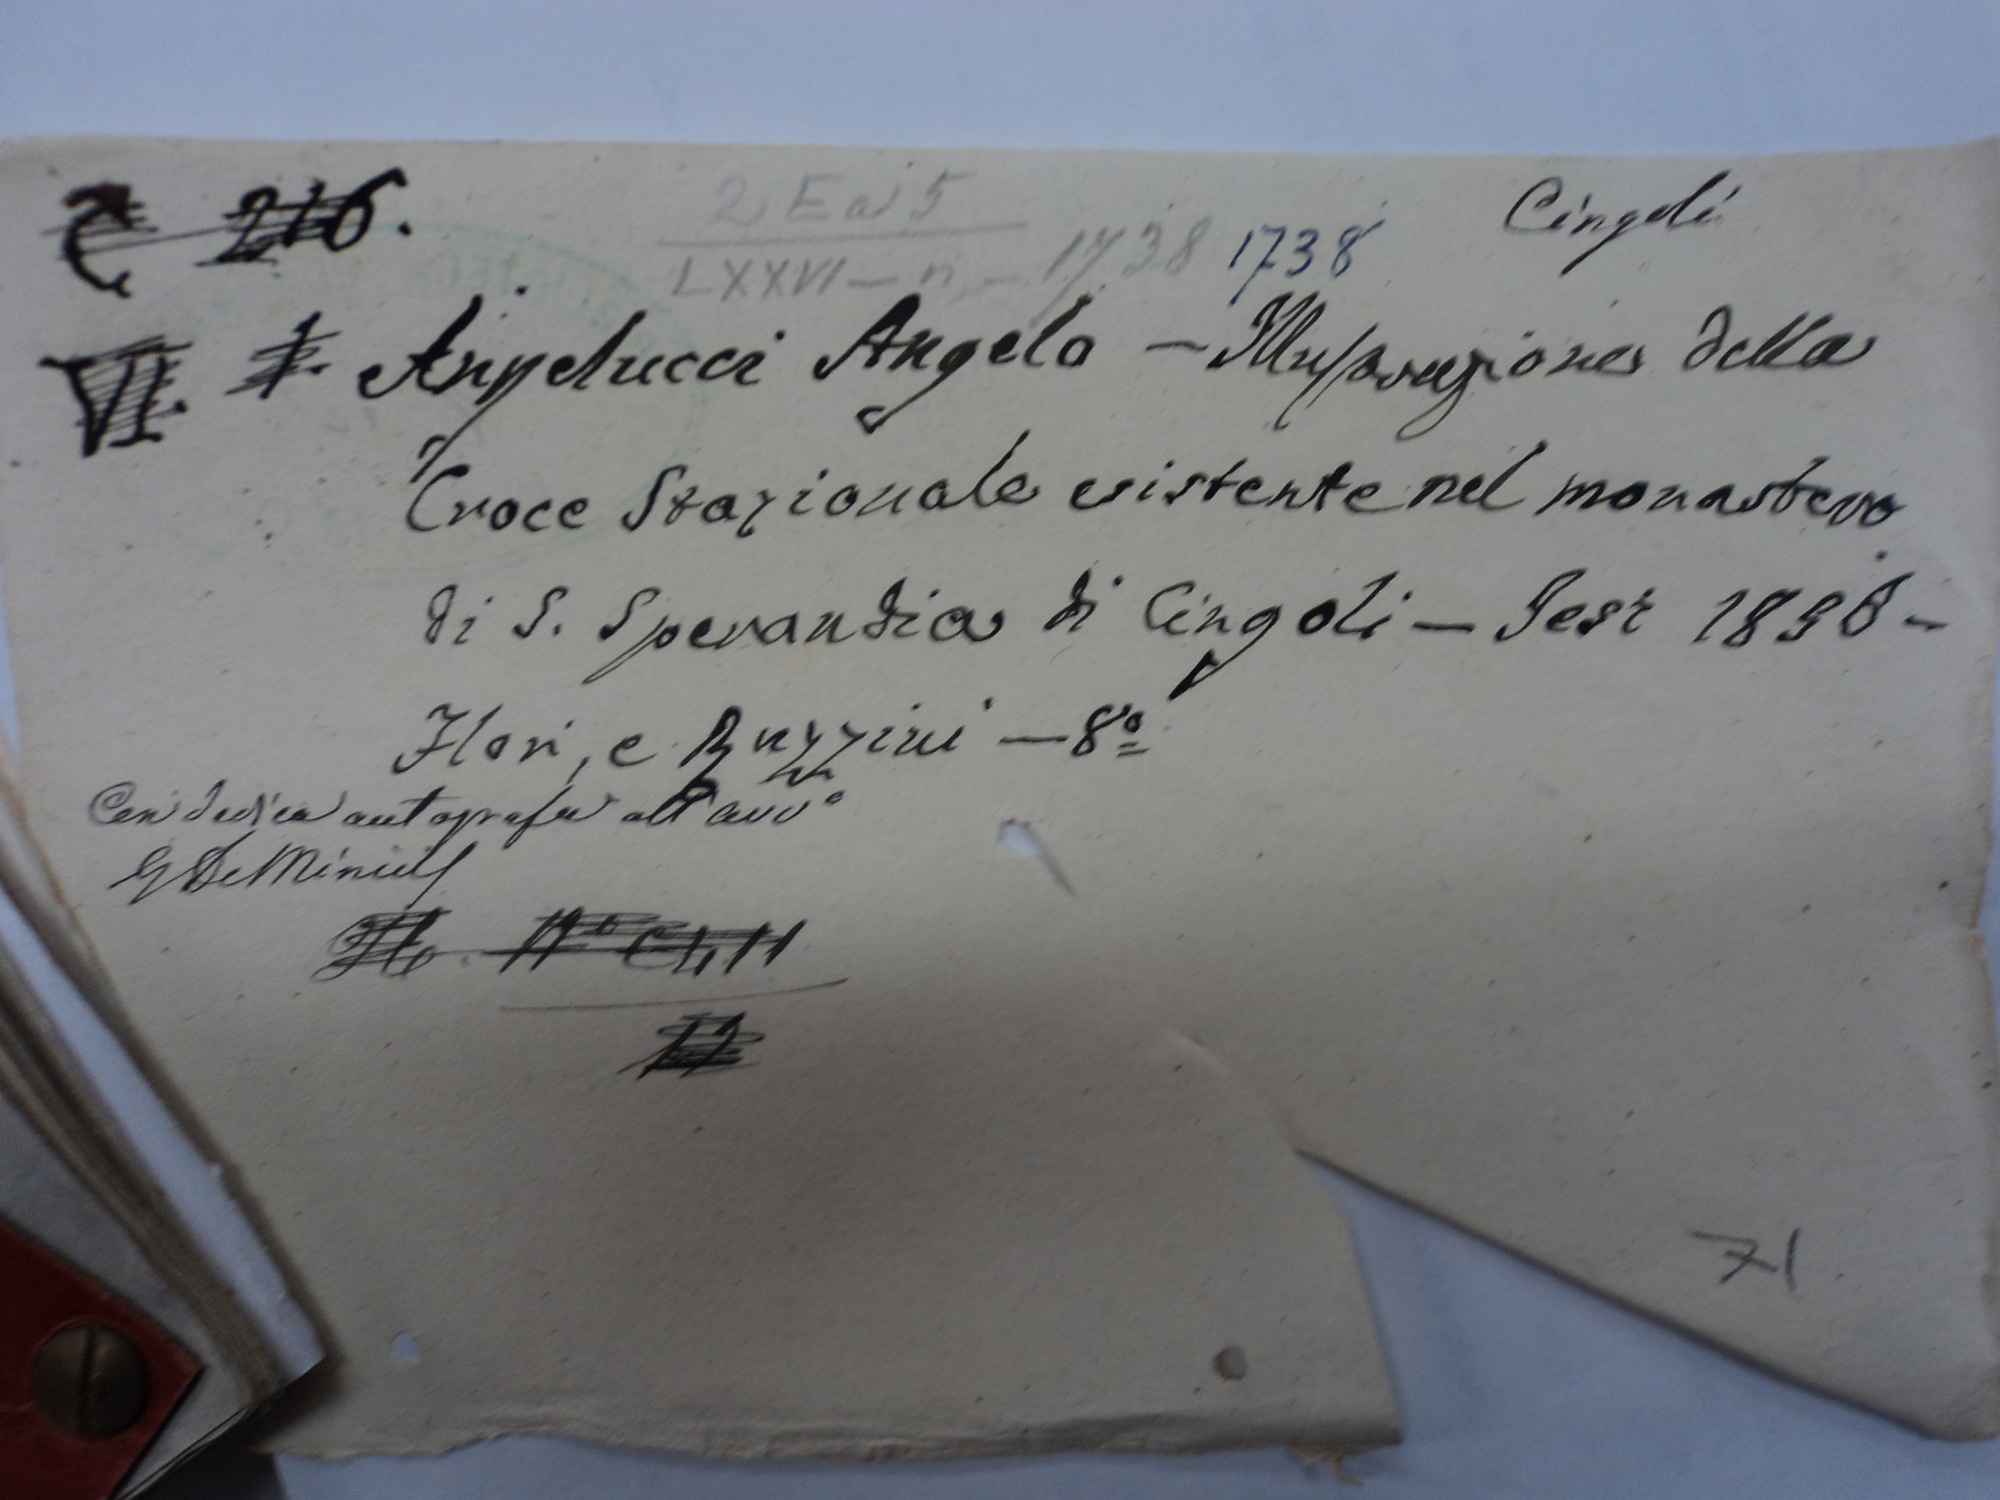 C 216.
2 E a 5
LXXVI - n. - 1738 1738
Cingoli
VI. 1. Angelucci Angelo - Illustrazione della
Croce Stazionale esistente nel monastero
di S. Sperandia di Cingoli - Jesi
Flori, e Ruzzini - 8º
Con dedica autografa all'avvº
G De Minicis
71